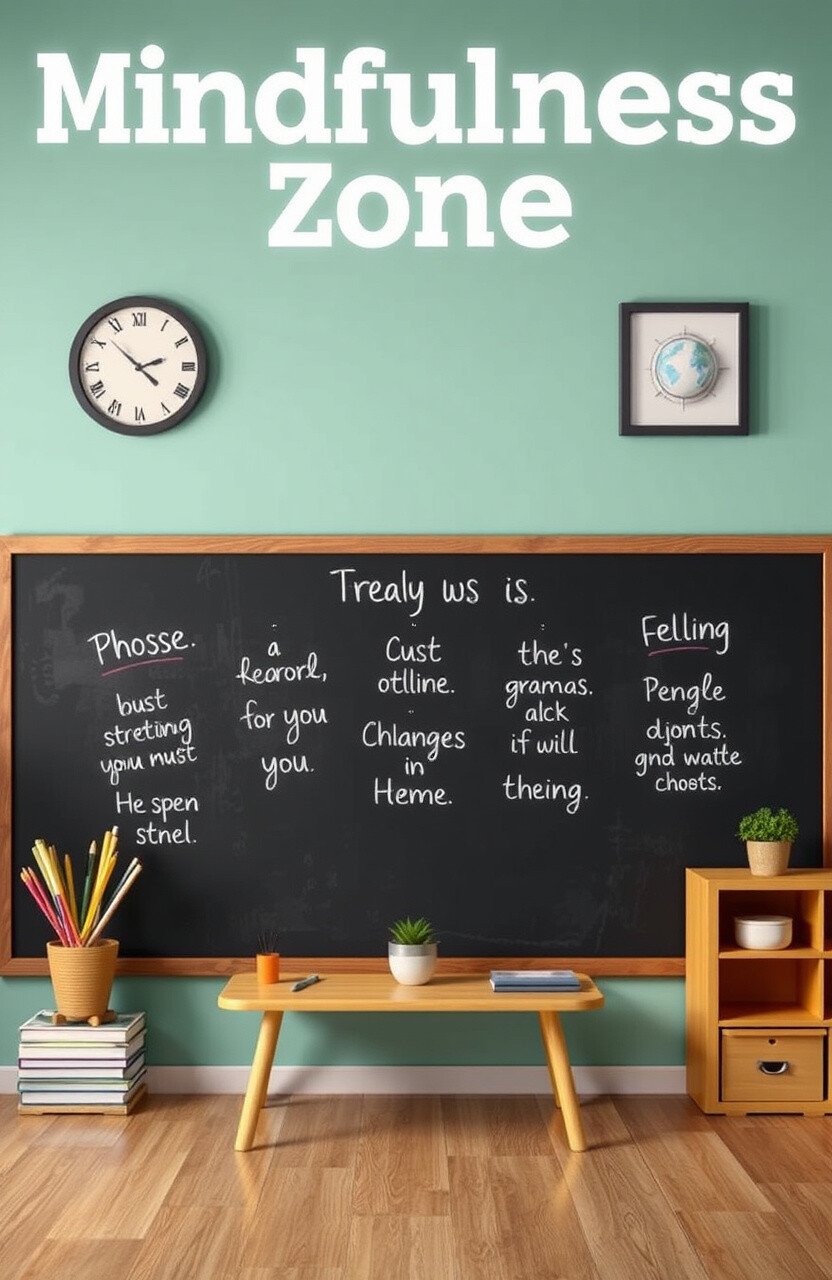 Mindfulness
Zone
XII
Trealy ws is.
Phosse.
bust
stretiing
you must
He spen
stnel.
a
for you
you.
Cust
otlline.
Chlanges
in
Heme.
the's
gramas.
alck
if will
theing.
Felling
Pengle
djonts.
gnd watte
chosts.